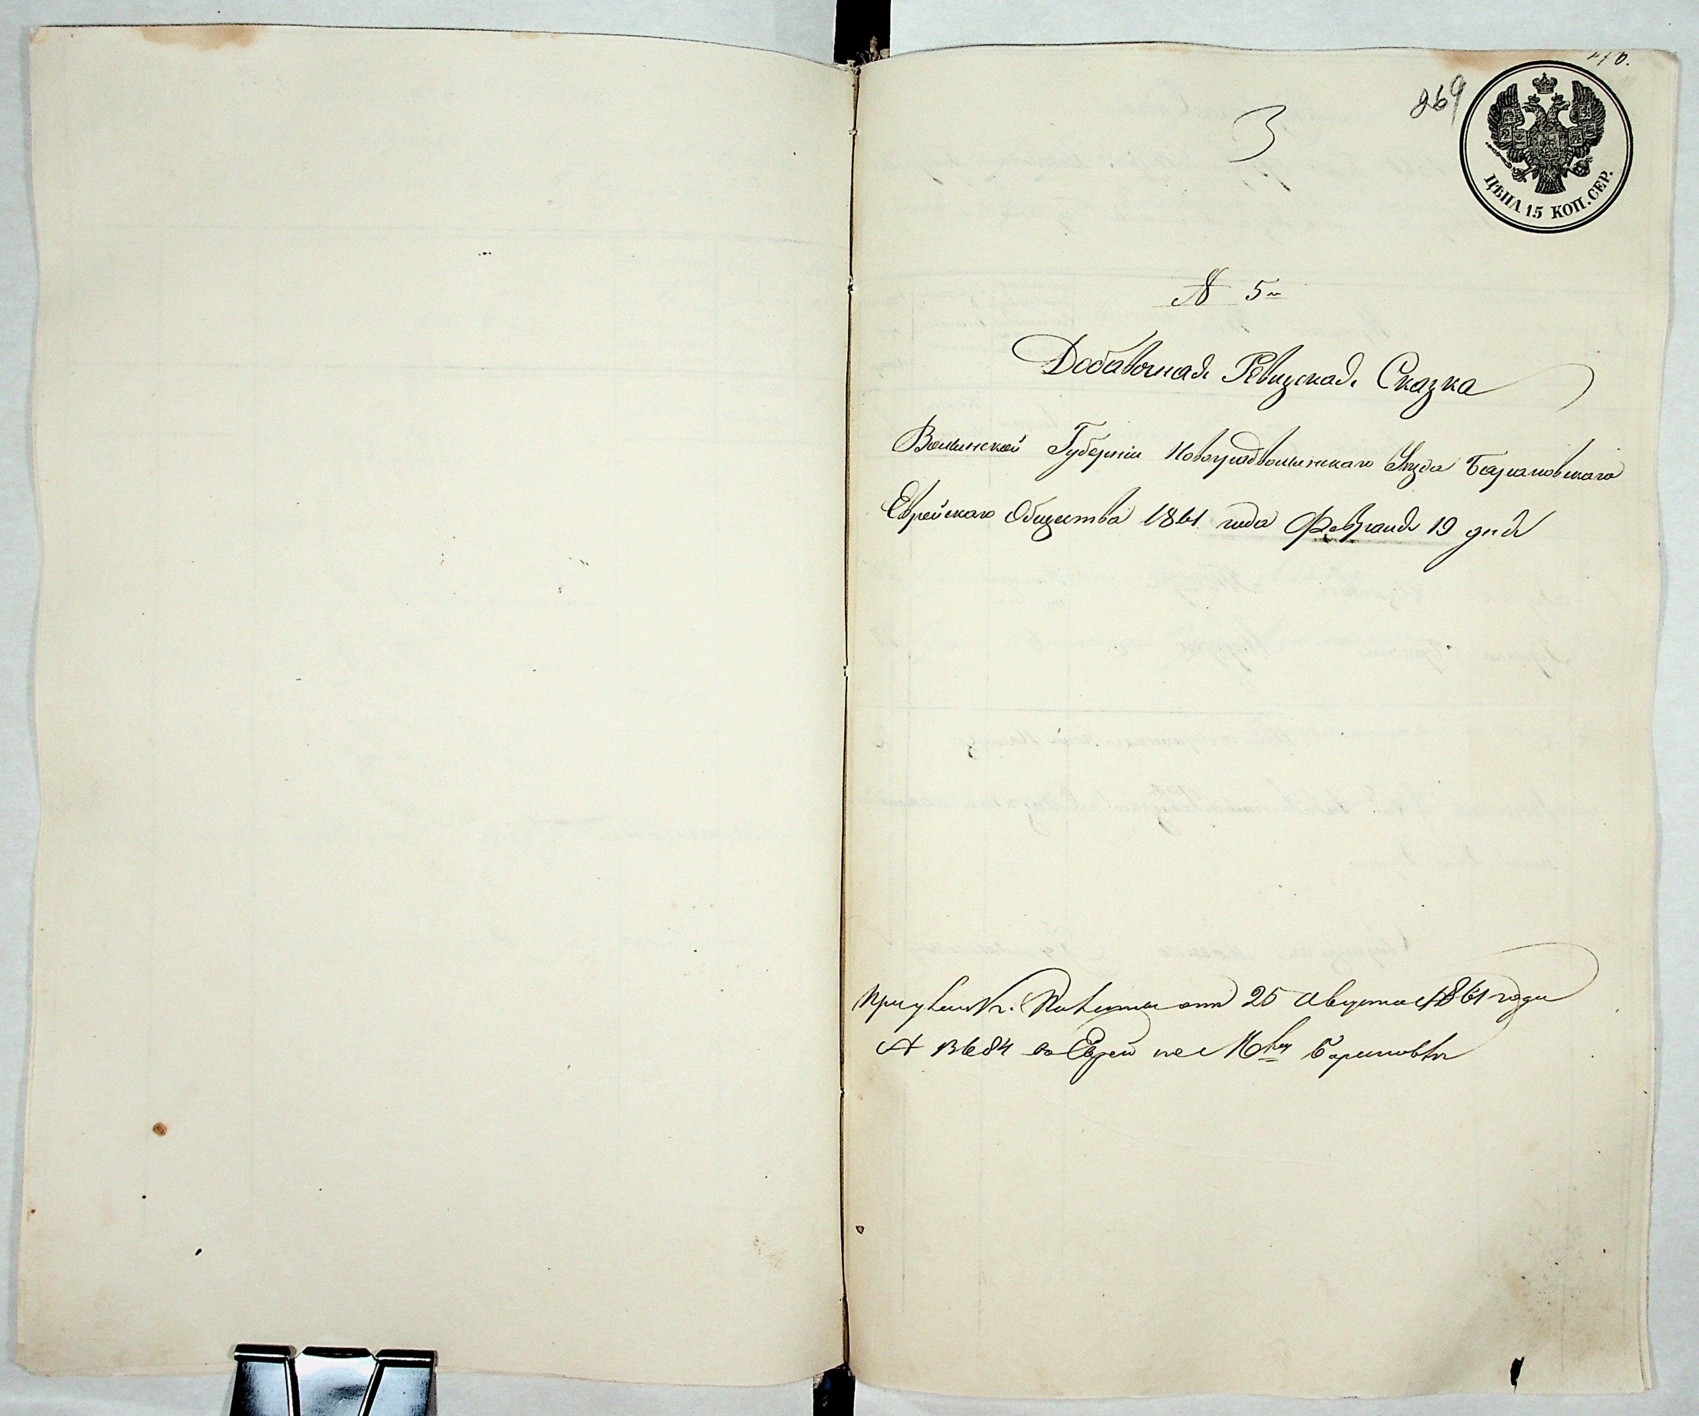 269
3
ЦѢНА 15 КОП. СЕР.
№ 5й
Добавочная Ревизская Сказка
Волынской Губерніи Новоградволынскаго Уезда Барановскаго
Еврейскаго Общества 1861 года Февраля 19 дня
отъ 25 Августа 1861 года
№ 13684 Барановки